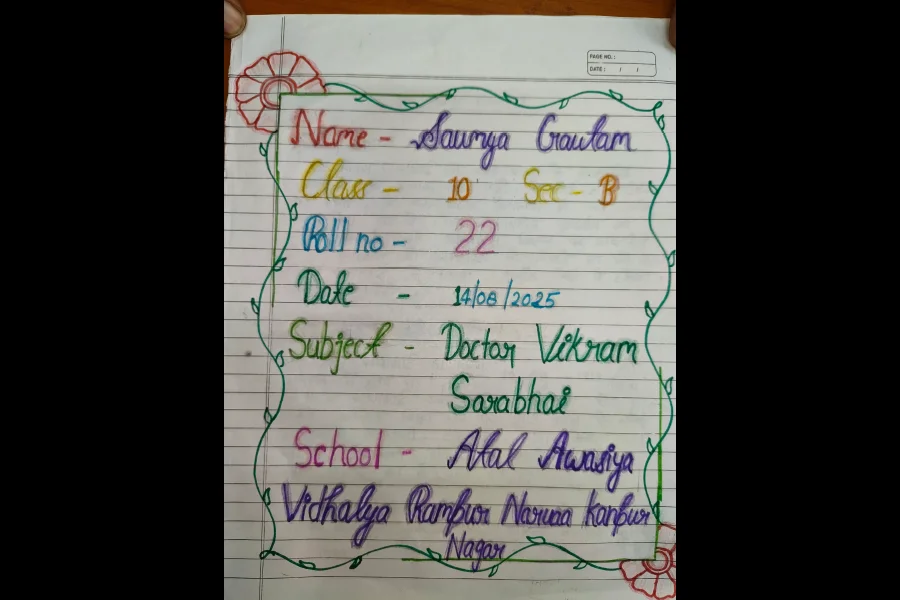 PAGE NO.:
DATE: / /
Name - Saumya Gautam
Class - 10 Sec - B
Roll no - 22
Date - 14/08/2025
Subject - Doctor Vikram
Sarabhai
School - Atal Awasiya
Vidhalya Rampur Naruaa Kanpur
Nagar